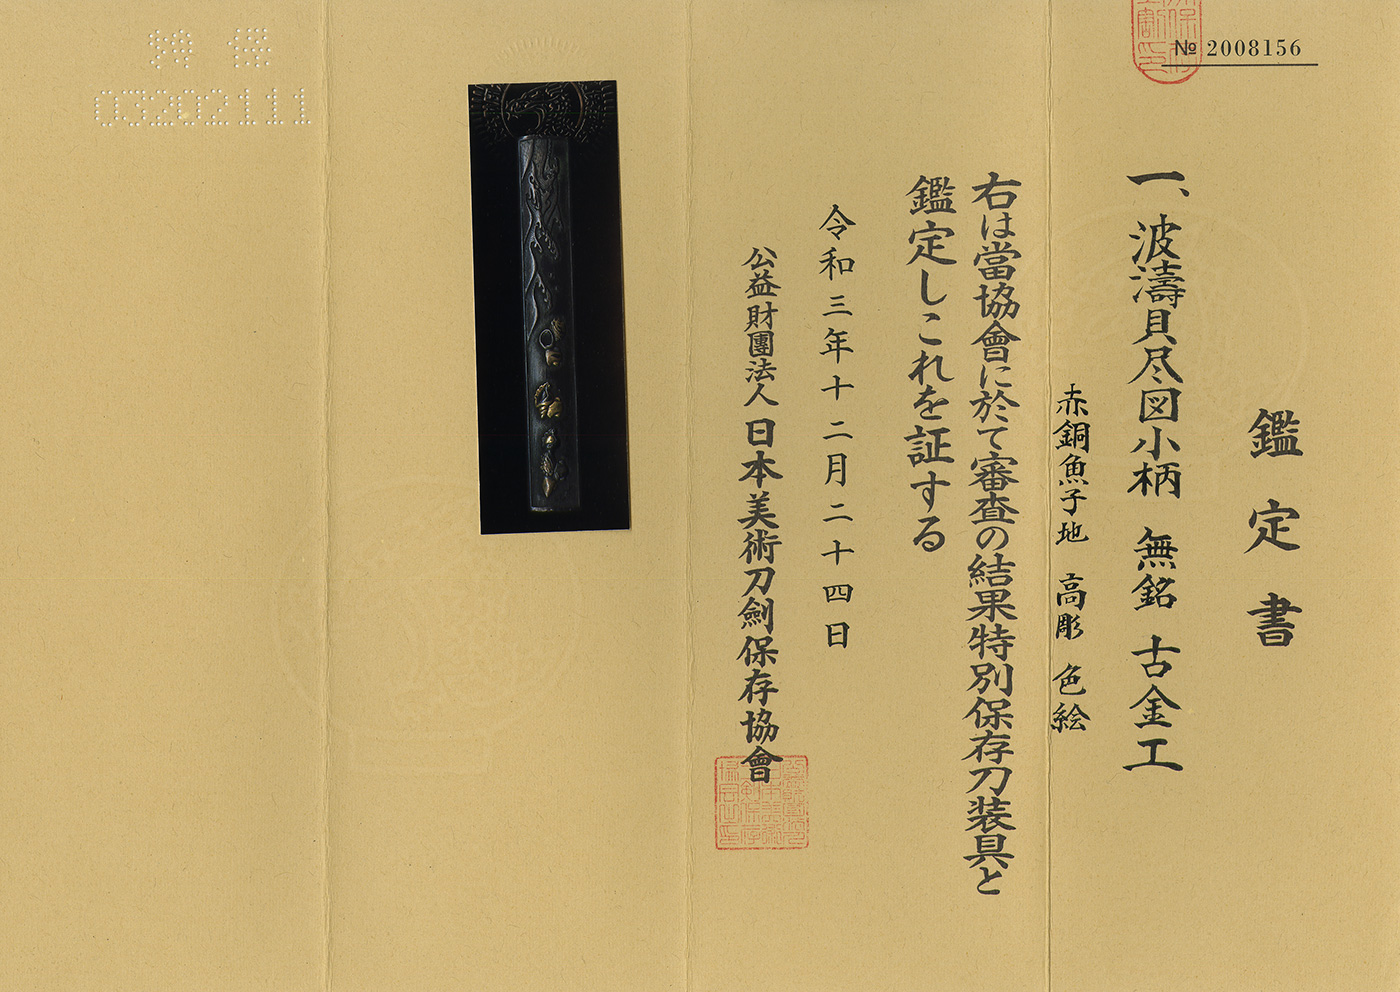 № 2008156
鑑定書
一、波濤貝尽図小柄 無銘 古金工
赤銅魚子地 高彫 色絵
右は當協會に於て審査の結果特別保存刀装具と
鑑定しこれを証する
令和三年十二月二十四日
公益財團法人 日本美術刀劍保存協會
特保
03202111